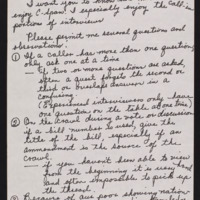 I want you to know how much I
enjoy C-Span. I especially enjoy the call-in
portion of interviews
Please permit me several questions and
observations:
① If a caller has more than one question,
only ask one at a time
— if two or more questions are asked,
often a guest forgets the second or
third or answer is
confusing
(Experienced interviewers only have
one question on the table at one time)
② On the Crawl during a vote or discussion
if a bill number is used, give
the title of the bill, especially if an
amendment is the source of the
crawl.
— if you haven't been able to view
from the beginning it is
and often impossible to pick up
the thread.
③ Because of our poor showing nation-